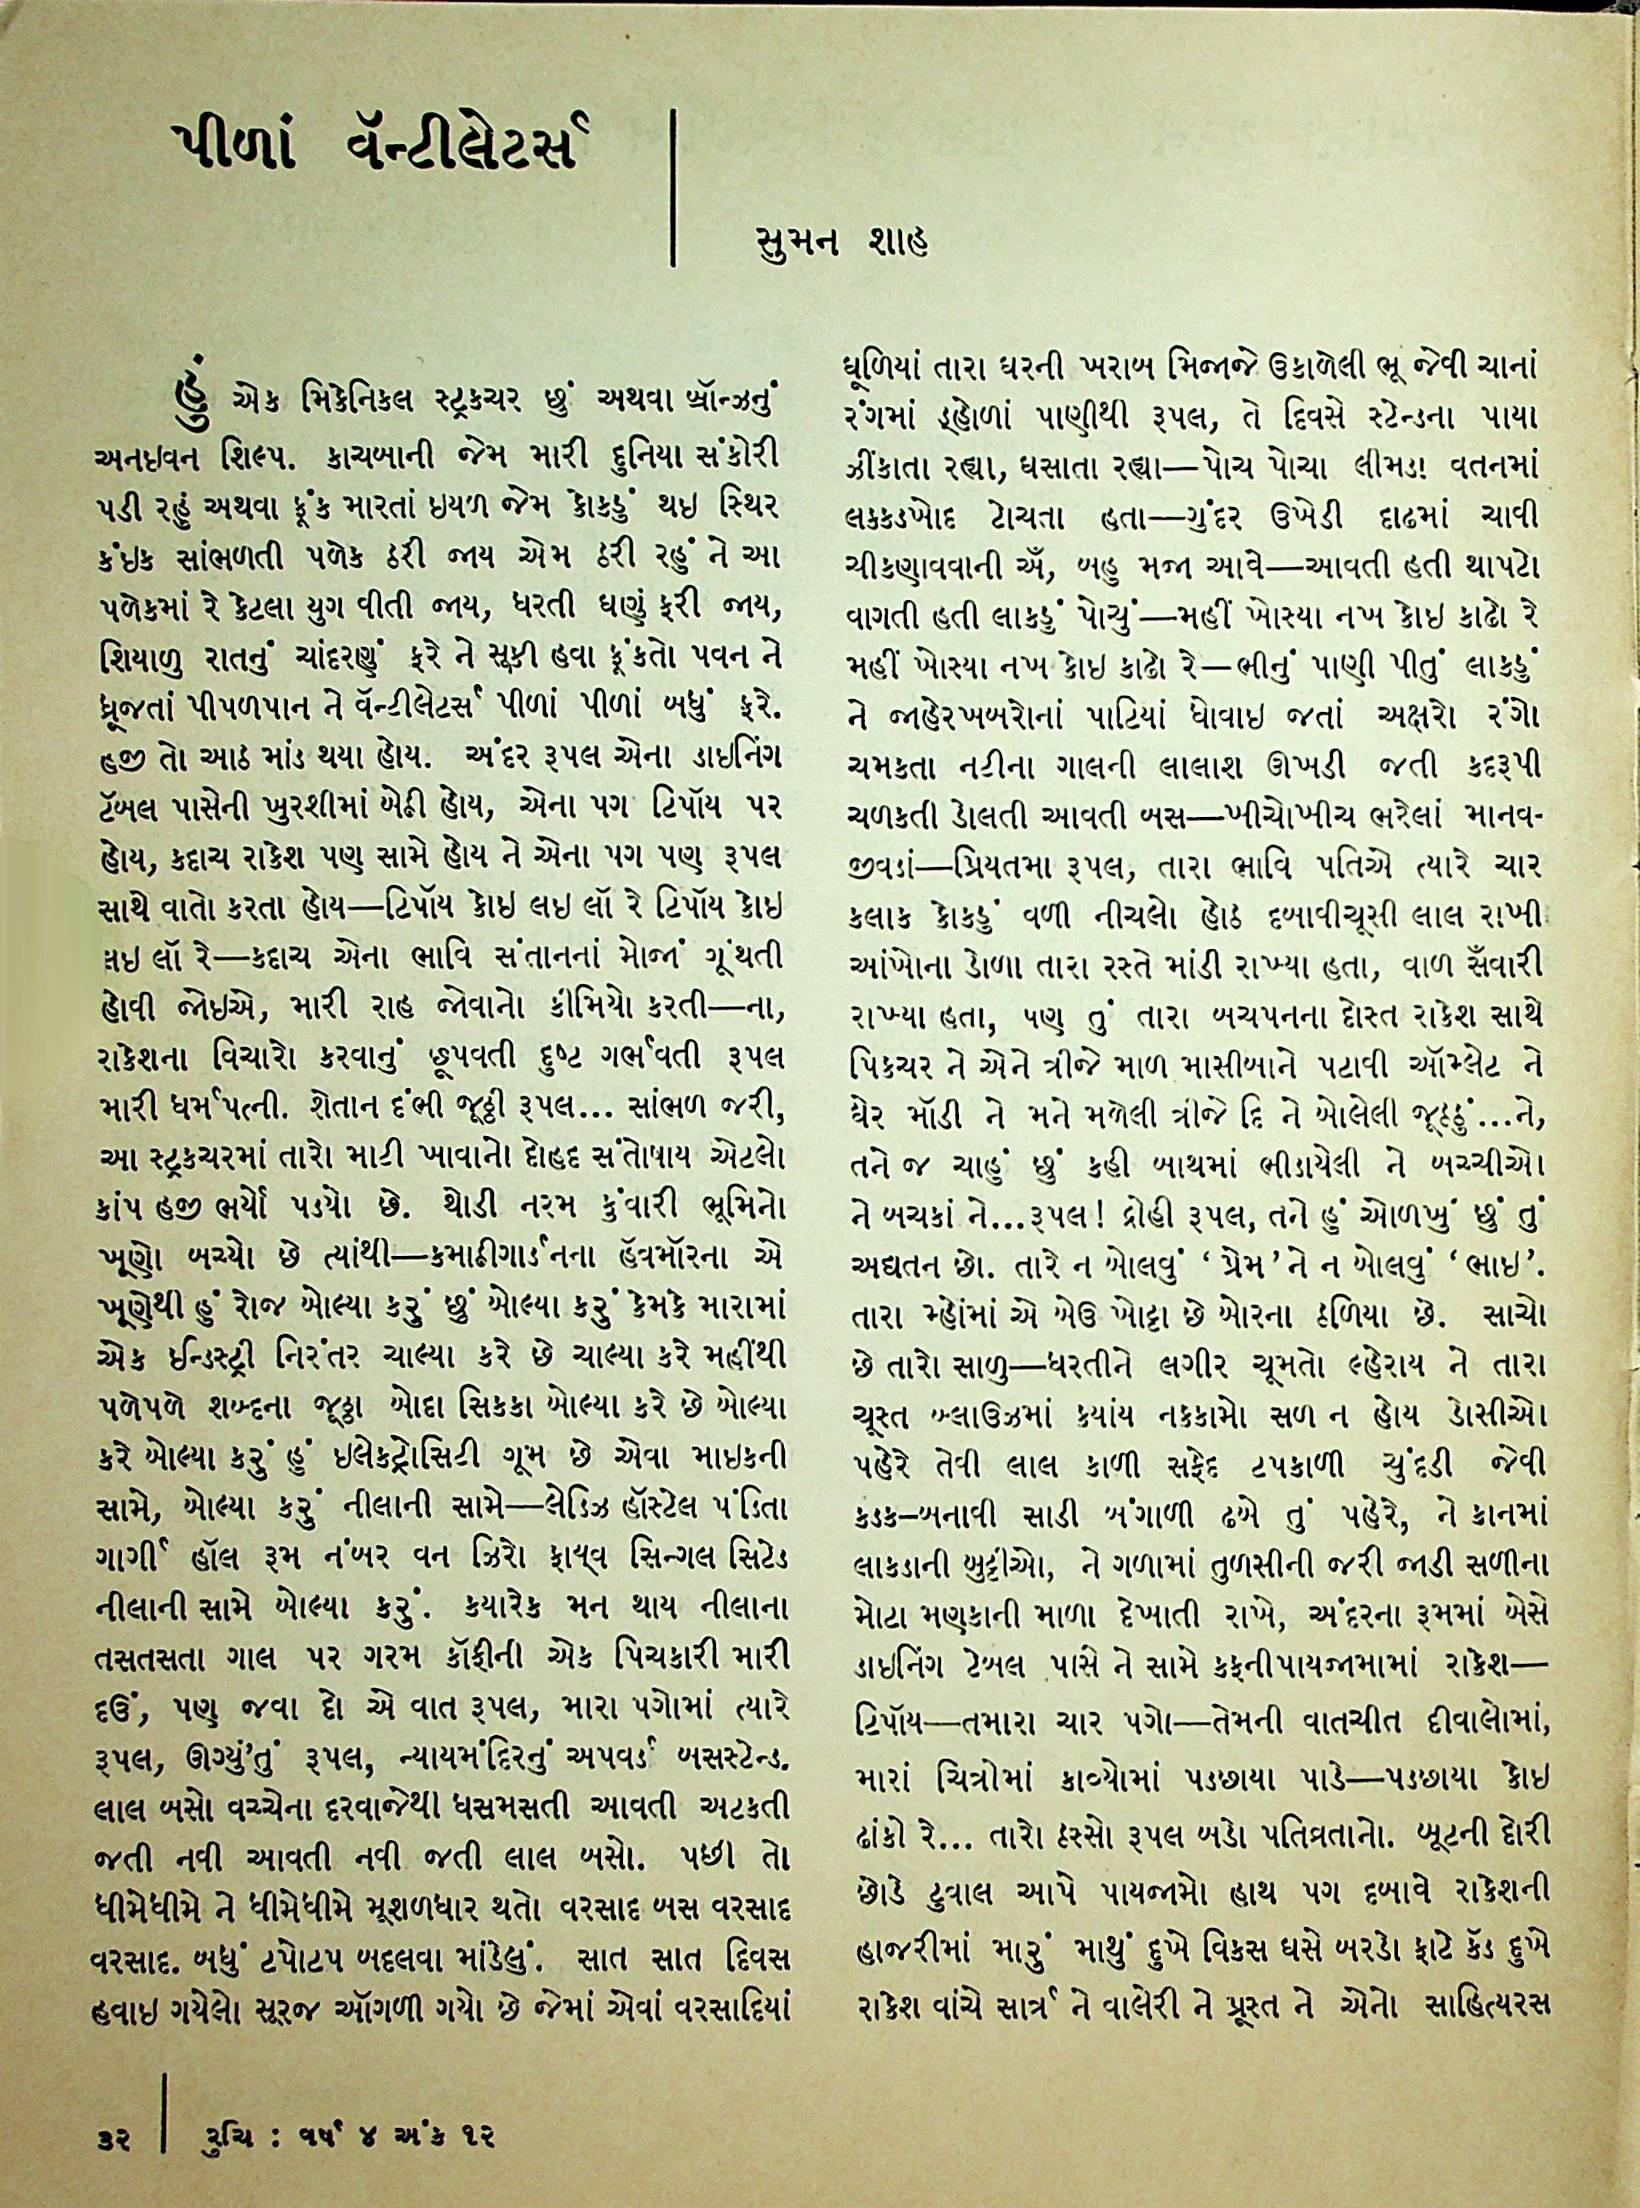 પીળાં વૅન્ટીલેટર્સ
સુમન શાહ
હું એક મિકેનિકલ સ્ટ્રક્ચર છું અથવા બ્રૉન્ઝનું
અનઇવન શિલ્પ. કાચબાની જેમ મારી દુનિયા સંકોરી
પડી રહું અથવા ફૂંક મારતાં ઇયળ જેમ કોકડું થઇ સ્થિર
કંઇક સાંભળતી પળેક ઠરી જાય એમ ઠરી રહું ને આ
પળેકમાં રે કેટલા યુગ વીતી જાય, ધરતી ઘણું ફરી જાય,
શિયાળુ રાતનું ચાંદરણું ફરે ને સૂકી હવા ફૂંકતો પવન ને
ધ્રૂજતાં પીપળપાન ને વૅન્ટીલેટર્સ પીળાં પીળાં બધું ફરે.
હજી તો આઠ માંડ થયા હોય. અંદર રૂપલ એના ડાઇનિંગ
ટૅબલ પાસેની ખુરશીમાં બેઠી હોય, એના પગ ટિપૉય પર
હોય, કદાચ રાકેશ પણ સામે હોય ને એના પગ પણ રૂપલ
સાથે વાતો કરતા હોય—ટિપૉય કોઇ લઇ લૉ રે ટિપૉય કોઇ
લઇ લૉ રે—કદાચ એના ભાવિ સંતાનનાં મોજાં ગૂંથતી
હોવી જોઇએ, મારી રાહ જોવાનો કીમિયો કરતી—ના,
રાકેશના વિચારો કરવાનું છૂપવતી દુષ્ટ ગર્ભવતી રૂપલ
મારી ધર્મપત્ની. શેતાન દંભી જૂઠ્ઠી રૂપલ... સાંભળ જરી,
આ સ્ટ્રક્ચરમાં તારો માટી ખાવાનો દોહદ સંતોષાય એટલો
કાંપ હજી ભર્યો પડયો છે. થોડી નરમ કુંવારી ભૂમિનો
ખૂણો બચ્યો છે ત્યાંથી—કમાટીગાર્ડનના હૅવમૉરના એ
ખૂણેથી હું રોજ બોલ્યા કરું છું બોલ્યા કરું કેમકે મારામાં
એક ઈન્ડસ્ટ્રી નિરંતર ચાલ્યા કરે છે ચાલ્યા કરે મહીંથી
પળેપળે શબ્દના જૂઠ્ઠા બોદા સિક્કા બોલ્યા કરે છે બોલ્યા
કરે બોલ્યા કરું હું ઇલેકટ્રોસિટી ગૂમ છે એવા માઇકની
સામે, બોલ્યા કરું નીલાની સામે—લેડિઝ હૉસ્ટેલ પંડિતા
ગાર્ગી હૉલ રૂમ નંબર વન ઝિરો ફાયવ સિન્ગલ સિટેડ
નીલાની સામે બોલ્યા કરું. કયારેક મન થાય નીલાના
તસતસતા ગાલ પર ગરમ કૉફીની એક પિચકારી મારી
દઉં, પણ જવા દો એ વાત રૂપલ, મારા પગોમાં ત્યારે
રૂપલ, ઊગ્યું'તું રૂપલ, ન્યાયમંદિરનું અપવર્ડ બસસ્ટેન્ડ.
લાલ બસો વચ્ચેના દરવાજેથી ધસમસતી આવતી અટકતી
જતી નવી આવતી નવી જતી લાલ બસો. પછી તો
ધીમેધીમે ને ધીમેધીમે મૂશળધાર થતો વરસાદ બસ વરસાદ
વરસાદ. બધું ટપોટપ બદલવા માંડેલું. સાત સાત દિવસ
હવાઇ ગયેલો સૂરજ ઑગળી ગયો છે જેમાં એવાં વરસાદિયાં
ધૂળિયાં તારા ઘરની ખરાબ મિજાજે ઉકાળેલી ભૂ જેવી ચાનાં
રંગમાં ડ્હોળાં પાણીથી રૂપલ, તે દિવસે સ્ટેન્ડના પાયા
ઝીંકાતા રહ્યા, ઘસાતા રહ્યા—પોચ પોચા લીમડા વતનમાં
લક્કડખોદ ટોચતા હતા—ગુંદર ઉખેડી દાઢમાં ચાવી
ચીકણાવવાની અઁ, બહુ મજા આવે—આવતી હતી થાપટો
વાગતી હતી લાકડું પોચું—મહીં ખોસ્યા નખ કોઇ કાઢો રે
મહીં ખોસ્યા નખ કોઇ કાઢો રે—ભીનું પાણી પીતું લાકડું
ને જાહેરખબરોનાં પાટિયાં ધોવાઇ જતાં અક્ષરો રંગો
ચમકતા નટીના ગાલની લાલાશ ઊખડી જતી કદરૂપી
ચળકતી ડોલતી આવતી બસ—ખીચોખીચ ભરેલાં માનવ-
જીવડાં—પ્રિયતમા રૂપલ, તારા ભાવિ પતિએ ત્યારે ચાર
કલાક કોકડું વળી નીચલો હોઠ દબાવીચૂસી લાલ રાખી
આંખોના ડોળા તારા રસ્તે માંડી રાખ્યા હતા, વાળ સઁવારી
રાખ્યા હતા, પણ તું તારા બચપનના દોસ્ત રાકેશ સાથે
પિકચર ને એને ત્રીજે માળ માસીબાને પટાવી ઑમ્લેટ ને
ઘેર મૉડી ને મને મળેલી ત્રીજે દિ ને બોલેલી જૂઠ્ઠું...ને,
તને જ ચાહું છું કહી બાથમાં ભીડાયેલી ને બચ્ચીઓ
ને બચકાં ને...રૂપલ! દ્રોહી રૂપલ, તને હું ઓળખું છું તું
અદ્યતન છો. તારે ન બોલવું ‘પ્રેમ’ ને ન બોલવું ‘ભાઇ’.
તારા મ્હોંમાં એ બેઉ ખોટ્ટા છે બોરના ઠળિયા છે. સાચો
છે તારો સાળુ—ધરતીને લગીર ચૂમતો લ્હેરાય ને તારા
ચૂસ્ત બ્લાઉઝમાં કયાંય નકકામો સળ ન હોય ડોસીઓ
પહેરે તેવી લાલ કાળી સફેદ ટપકાળી ચુંદડી જેવી
કડક–બનાવી સાડી બંગાળી ઢબે તું પહેરે, ને કાનમાં
લાકડાની બુટ્ટીઓ, ને ગળામાં તુળસીની જરી જાડી સળીના
મોટા મણકાની માળા દેખાતી રાખે, અંદરના રૂમમાં બેસે
ડાઇનિંગ ટેબલ પાસે ને સામે કફનીપાયજામામાં રાકેશ—
ટિપૉય—તમારા ચાર પગો—તેમની વાતચીત દીવાલોમાં,
મારાં ચિત્રોમાં કાવ્યોમાં પડછાયા પાડે—પડછાયા કોઇ
ઢાંકો રે... તારો ઠસ્સો રૂપલ બડો પતિવ્રતાનો. બૂટની દોરી
છોડે ટુવાલ આપે પાયજામો હાથ પગ દબાવે રાકેશની
હાજરીમાં મારું માથું દુખે વિકસ ઘસે બરડો ફાટે કૅડ દુખે
રાકેશ વાંચે સાર્ત્ર ને વાલેરી ને પ્રૂસ્ત ને એનો સાહિત્યરસ
૩૨ રુચિ : વર્ષ ૪ અંક ૧૨